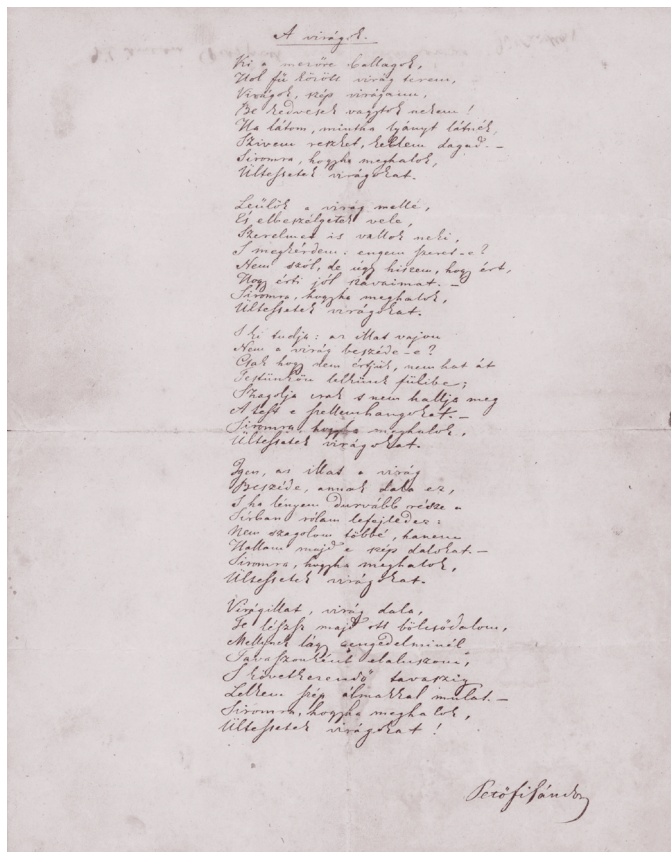 A virágok.
Ki a mezőre ballagok,
Hol fű között virág terem,
Virágok, szép virágaim,
Be kedvesek vagytok nekem!
Ha látom, mintha lyányt látnék,
Szivem reszket, keblem dagad. —
Siromra, hogyha meghalok,
Ültessetek virágokat.
Leülök a virág mellé,
És elbeszélgetek vele,
Szerelmet is vallok neki,
S megkérdem: engem szeret-e?
Nem szól, de úgy hiszem, hogy ért,
Hogy érti jól szavaimat. —
Siromra, hogyha meghalok,
Ültessetek virágokat.
S ki tudja: az illat vajon
Nem a virág beszéde-e?
Csak hogy nem értjük, nem hat át
Testünkön lelkünk fülibe;
Szagolja csak s nem hallja meg
A test e szellemhangokat. —
Siromra, hogyha meghalok,
Ültessetek virágokat.
Igen, az illat a virág
Beszéde, annak dala ez,
S ha lényem durvább része a
Sirban rólam lefejledez:
Nem szagolom többé, hanem
Hallom majd e szép dalokat. —
Siromra, hogyha meghalok,
Ültessetek virágokat.
Virágillat, virág dala,
Te léssz majd ott bölcsődalom,
Mellynek lágy zengedelminél
Tavaszonként elaluszom,
S következendő tavaszig
Lelkem szép álmakkal mulat. —
Siromra, hogyha meghalok,
Ültessetek virágokat!
Petőfi Sándor